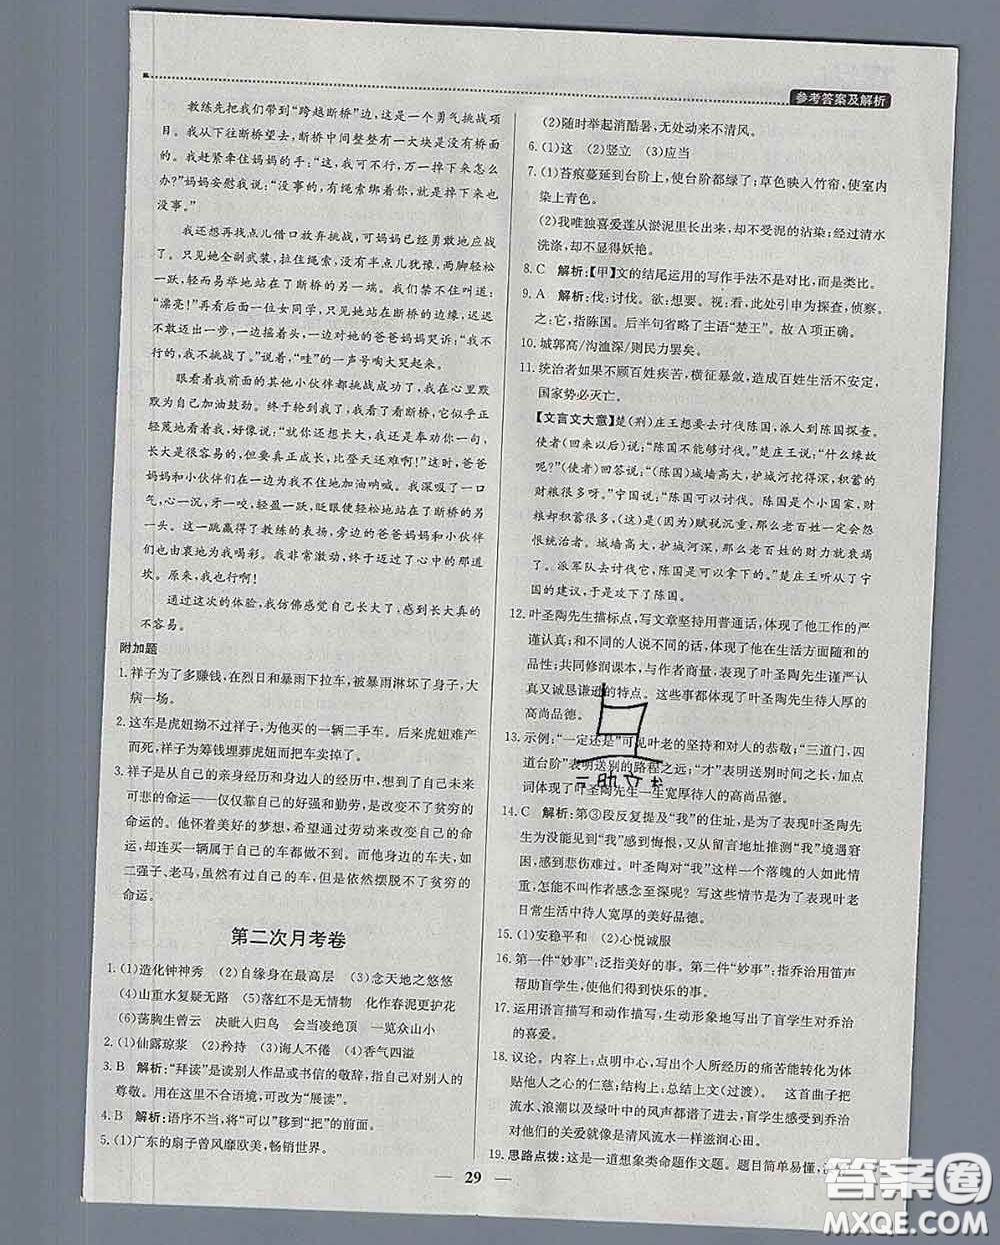 参考答案及解析
教练先把我们带到“跨越断桥”边,这是一个勇气挑战项
目。我从下往断桥望去,断桥中间整整有一大块是没有桥
的。我赶紧牵住妈妈的手:“这,我可不行,万一掉下来怎么
办?”妈妈安慰我说:“没事的,有绳索绑着你,就是掉下来也
没事。”
我还想再找点儿借口放弃挑战,可妈妈已经勇敢地应战
了。只见她全副武装,拉住绳索,没有半点儿犹豫,两脚轻松
一跃,轻而易举地站在了断桥的另一端。我们禁不住叫道:
“漂亮!”再看后面一位女同学,只见她站在断桥的边缘,迟迟
不敢大步迈出,一边摇着头,一边对她的爸爸妈妈哭诉:“我
不行,我不挑战了。”说着,“哇”的一声号啕大哭起来。
眼看着我前面的其他小伙伴都挑战成功了,我在心里默
默为自己加油鼓劲。终于轮到我了,我看了看断桥,它似乎正
轻蔑地看着我,好像说:“就你还想长大,我还是奉劝你一句,
长大是很难的,比登天还难啊!”这时,耳畔传来了妈妈、爸爸
妈妈和小伙伴们在一边为我不住地加油呐喊。我深吸了一口
气,心一沉,牙一咬,轻盈一跃,眨眼便轻松地站在了断桥的另
一头。这一跳赢得了教练的表扬,旁边的爸爸妈妈和小伙伴
们也由衷地为我喝彩。我非常激动,终于迈过了心中的那道
坎。原来,我也行啊!
通过这次的体验,我仿佛感觉自己长大了,感到长大真的
不容易。
附加题
1. 祥子为了多赚钱,在烈日和暴雨下拉车,被暴雨淋坏了身子,大
病一场。
2. 这车是虎妞拗不过祥子,为他买的一辆二手车。后来虎妞难产
而死,祥子为筹钱埋葬虎妞而把车卖掉了。
3. 祥子是从自己的亲身经历和身边人的经历中,想到了自己未来
可悲的命运——仅仅靠自己的好强和勤劳,是改变不了贫穷的
命运的。他怀着美好的梦想,希望通过劳动来改变自己的命
运,却连买一辆属于自己的车都做不到。而他身边的车夫,如
二强子、老马,虽然有过自己的车,但依然摆脱不了贫穷的
命运。
第二次月考卷
1. (1)造化钟神秀 (2)自缘身在最高层 (3)念天地之悠悠
(4)山重水复疑无路 (5)落红不是无情物 化作春泥更护花
(6)荡胸生曾云 决眦入归鸟 会当凌绝顶 一览众山小
2. (1)仙露琼浆 (2)矜持 (3)诲人不倦 (4)香气四溢
3. B 解析:“拜读”是读别人作品或书信的敬辞,指自己对别人的
尊敬。用在这里不合语境,可改为“展读”。
4. B 解析:语序不当,将“可以”移到“把”的前面。
5. (1)广东的扇子曾风靡欧美,畅销世界。
(2)随时举起消酷暑,无处动来不清风。
6. (1)这 (2)竖立 (3)应当
7. (1)苔痕蔓延到台阶上,使台阶都绿了;草色映入竹帘,使室内
染上青色。
(2)我唯独喜爱莲从淤泥里长出来,却不受泥的沾染;经过清水
洗涤,却不显得妖艳。
8. C 解析:【甲】文的结尾运用的写作手法不是对比,而是类比。
9. A 解析:伐:讨伐。欲:想要。视:看,此处引申为探查,侦察。
之:它,指陈国。后半句省略了主语“楚王”。故 A 项正确。
10. 城郭高/沟洫深/则民力罢矣。
11. 统治者如果不顾百姓疾苦,横征暴敛,造成百姓生活不安定,
国家势必灭亡。
【文言文大意】楚(荆)庄王想要去讨伐陈国,派人到陈国探查。
使者(回来以后)说:“陈国不能够讨伐。”楚庄王说:“什么缘故
呢?”(使者)回答说:“(陈国)城墙高大,护城河挖得深,积蓄的
财粮很多呀。”宁国说:“陈国可以讨伐。陈国是个小国家,财
粮却积蓄很多,(这)是(因为)赋税沉重,那么老百姓一定会怨
恨统治者。城墙高大,护城河深,那么老百姓的财力就衰竭
了。派军队去讨伐它,陈国是可以攻取的。”楚庄王听从了宁
国的意见,于是攻下了陈国。
12. 叶圣陶先生描标点,写文章坚持用普通话,体现了他工作的严
谨认真;和不同的人说不同的话,体现了他在生活方面随和的
品性;共同修润课本,与作者商量,表现了叶圣陶先生谨严认
真又诚恳谦逊的特点。这些事都体现了叶圣陶先生待人厚的
高尚品德。
13. 示例:“一定还是”可见叶老的坚持和对人的恭敬;“三道门,四
道台阶”表明送别的路程之远;“才”表明送别时间之长,加点
词体现了叶圣陶先生一生宽厚待人的高尚品德。
14. C 解析:第③段反复提及“我”的住址,是为了表现叶圣陶先
生为没能见到“我”感到悔恨,又从留言地址推测“我”境遇窘
困,感到悲伤难过。叶圣陶对“我”这样一个落魄的人尚如此
宽厚,怎能不叫作者感念至深呢?写这些情节是为了表现叶老
日常生活中待人宽厚的美好品德。
15. (1)安稳平和 (2)心悦诚服
16. 第一件“妙事”:泛指美好的事。第二件“妙事”:指乔治用笛声
帮助盲学生,使他们得到快乐的事。
17. 运用语言描写和动作描写,生动形象地写出了盲学生对乔治
的喜爱。
18. 议论。内容上:点明中心,写出个人所经历的痛苦能转化为体
贴他人之心的仁慈;结构上:总结上文(过渡)。 这首曲子把
流水、凉凉以及绿叶中的风声都猎了进去,盲学生感受到乔治
对他们的关爱就像是清风流水一样滋润心田。
19. 思路点拨:这是一道想象类命题作文题。题目简单易懂,
29
答案圈
MXQE.COM